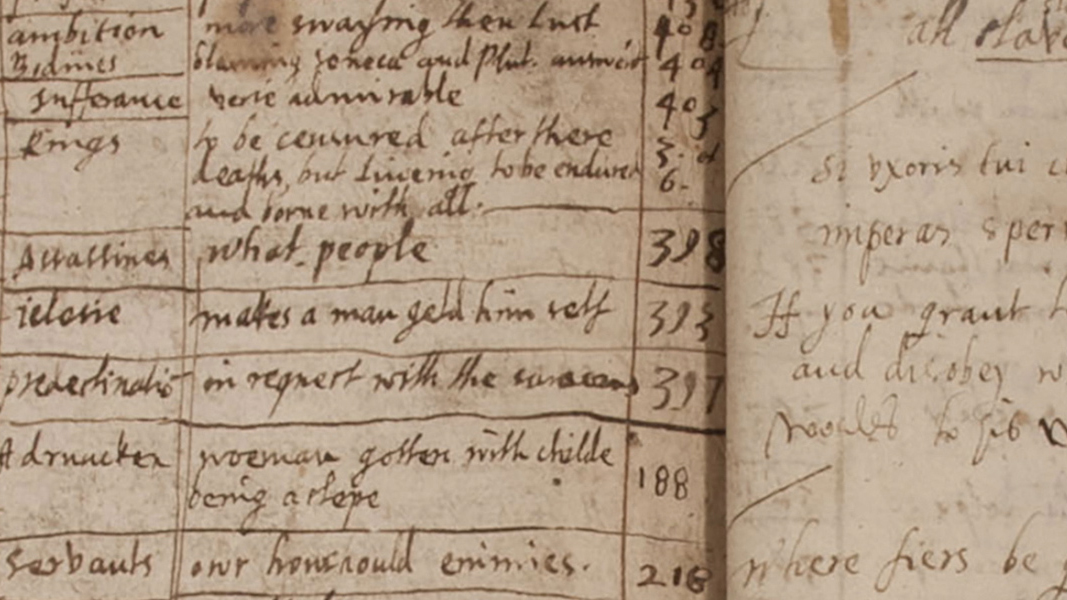 ambition more swaying then lust 408
Bodines blaming Seneca and Plut. answerd 404
Sufferance verie admirable 405
Kings to be censured after there 3.
deaths, but liveing to be endured 6.
and borne with all.
Assassines what people 398
ielosie makes a man geld him self 393
predestinatiō in request with the saracens 397
A druncken woeman gotten with childe 188
being a slepe
Servauts our houshould enimies. 218
all slave
Si vxoris tui
imperas
If you graunt
and disobey
to his
where fiers be